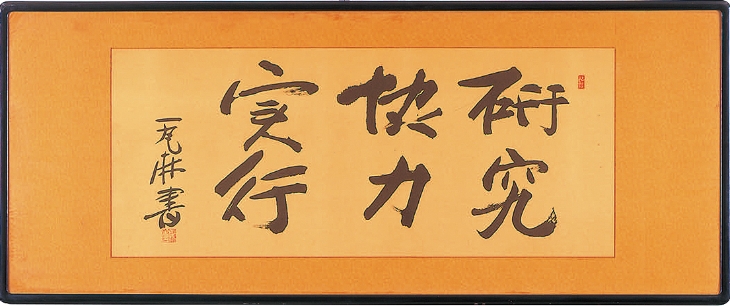 研究
協力
実行
一瓦麻書